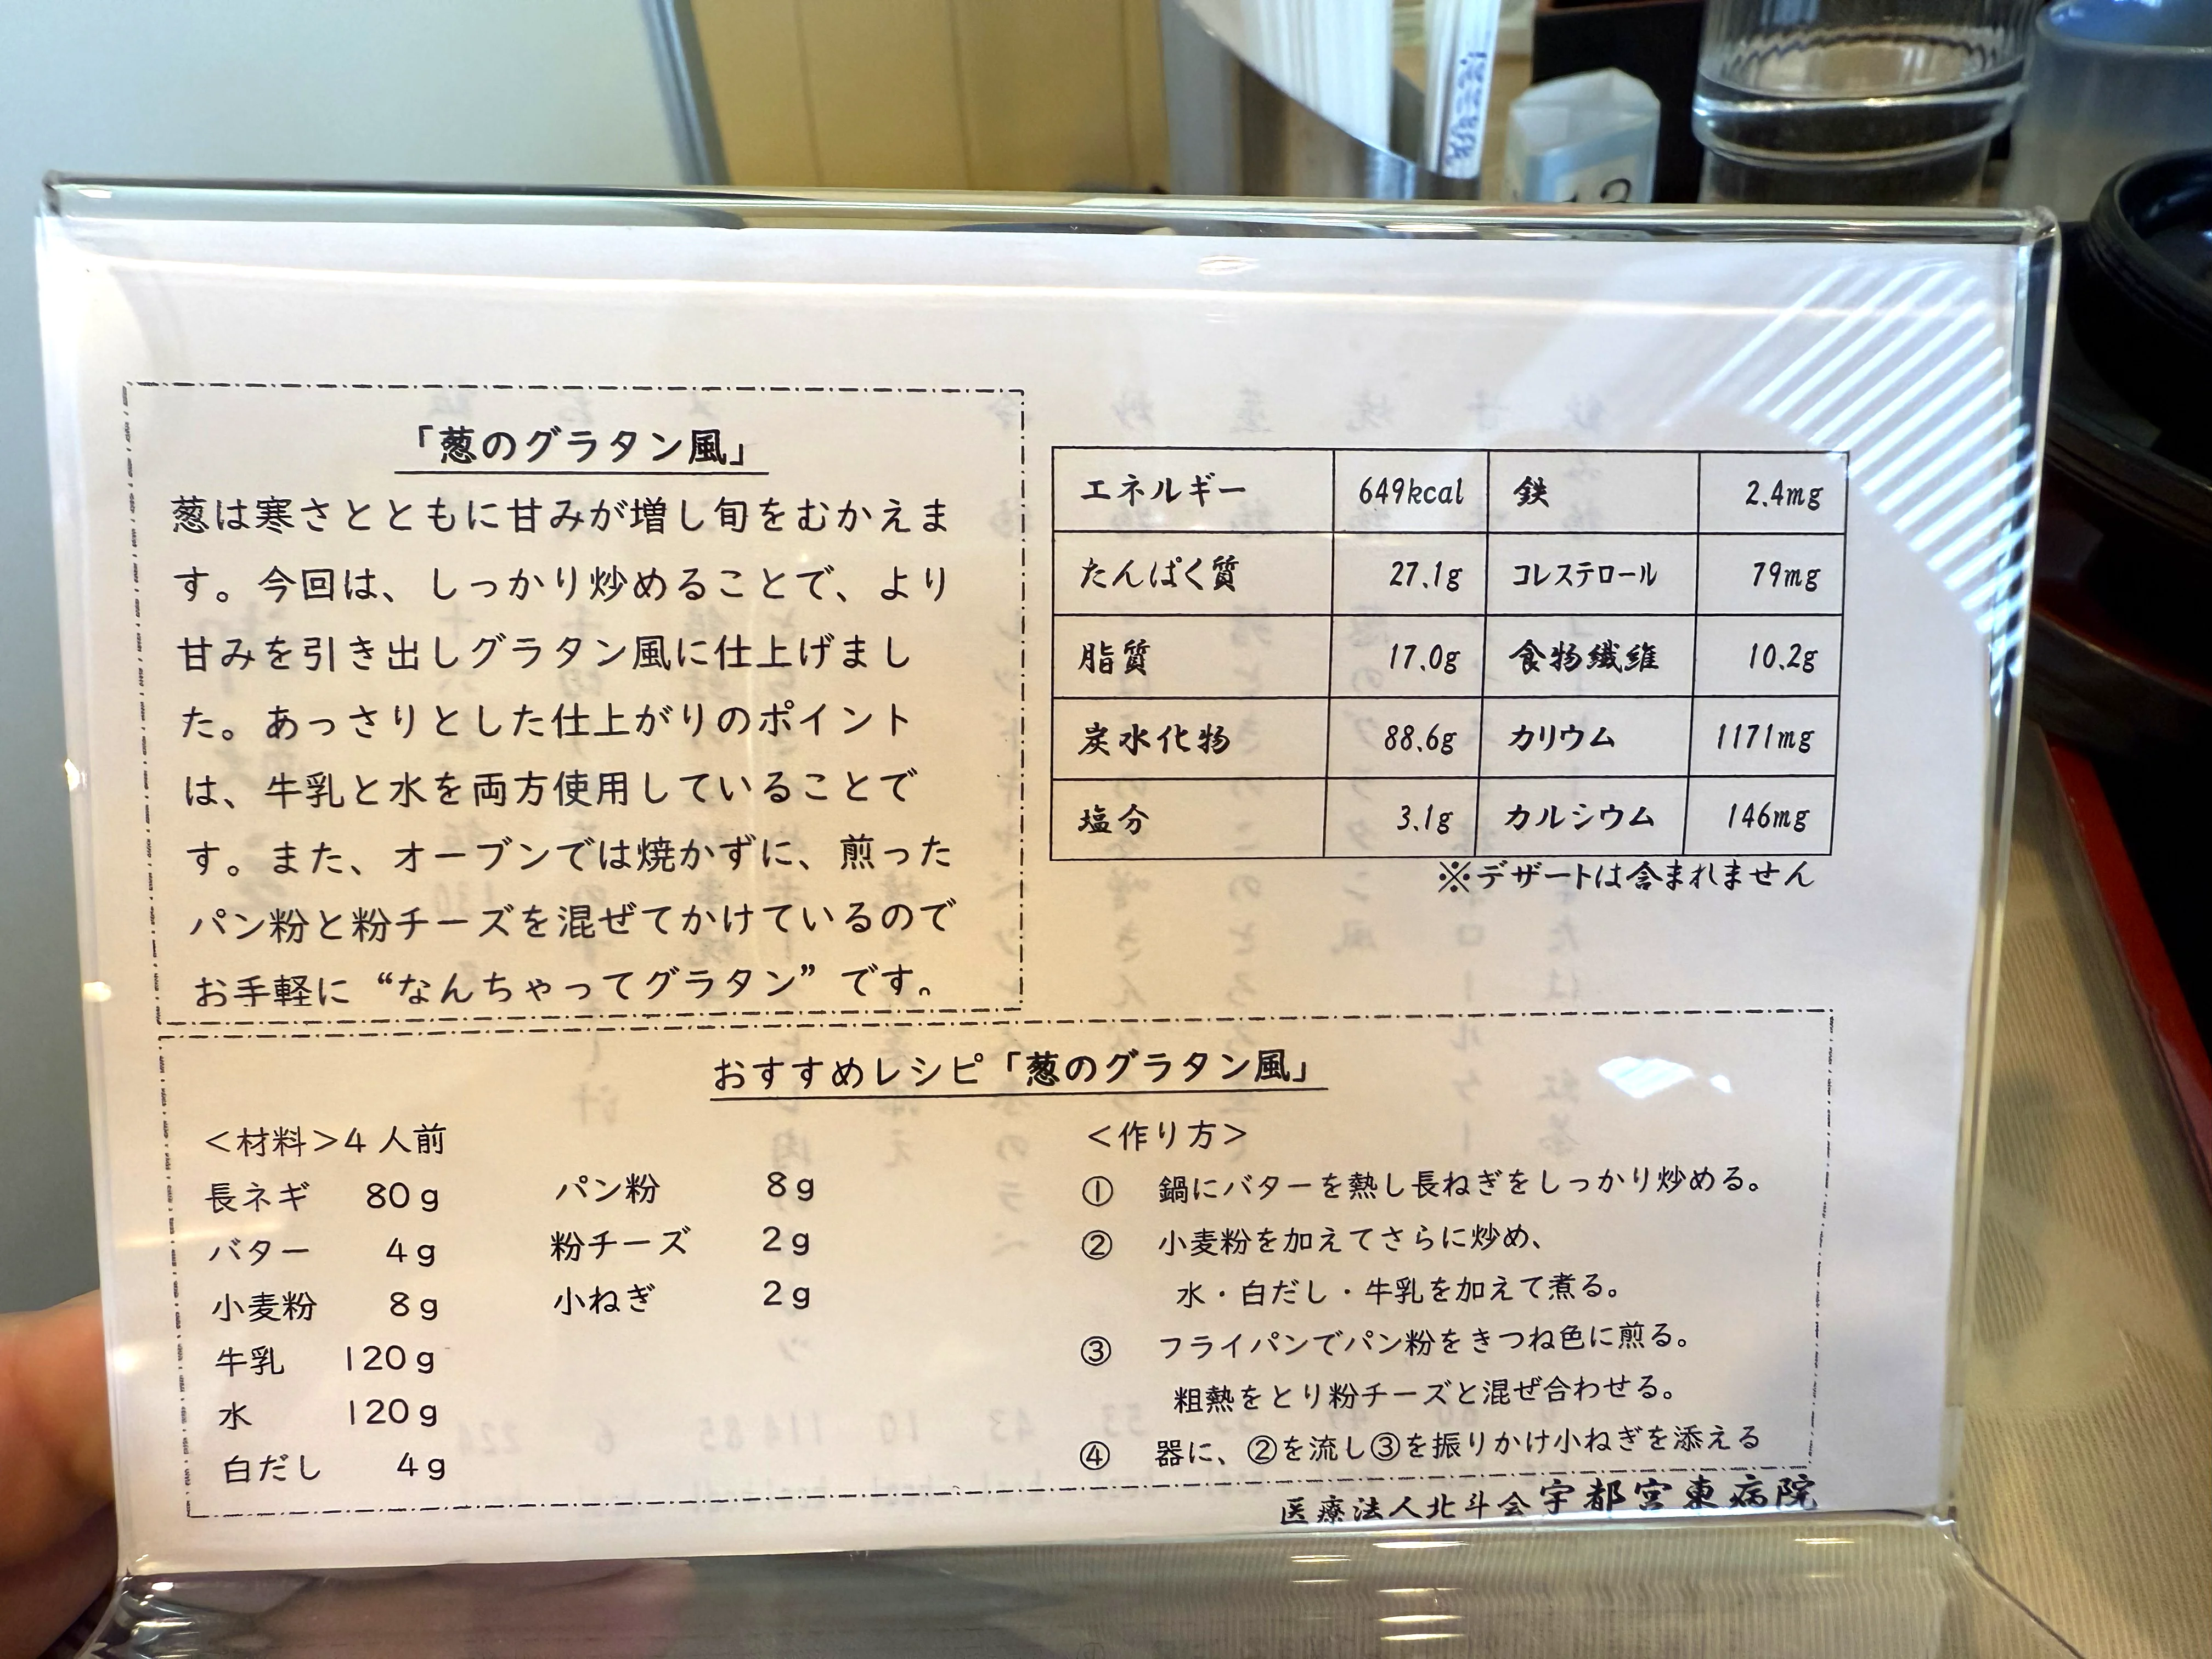 「葱のグラタン風」
葱は寒さとともに甘みが増し旬をむかえま
す。今回は、しっかり炒めることで、より
甘みを引き出しグラタン風に仕上げまし
た。あっさりとした仕上がりのポイント
は、牛乳と水を両方使用していることで
す。また、オーブンでは焼かずに、煎った
パン粉と粉チーズを混ぜてかけているので
お手軽に“なんちゃってグラタン”です。
エネルギー 649kcal 鉄 2.4mg
たんぱく質 27.1g コレステロール 79mg
脂質 17.0g 食物繊維 10.2g
炭水化物 88.6g カリウム 1171mg
塩分 3.1g カルシウム 146mg
※デザートは含まれません
おすすめレシピ「葱のグラタン風」
＜材料＞4人前
長ネギ 80g パン粉 8g
バター 4g 粉チーズ 2g
小麦粉 8g 小ねぎ 2g
牛乳 120g
水 120g
白だし 4g
＜作り方＞
① 鍋にバターを熱し長ねぎをしっかり炒める。
② 小麦粉を加えてさらに炒め、
水・白だし・牛乳を加えて煮る。
③ フライパンでパン粉をきつね色に煎る。
粗熱をとり粉チーズと混ぜ合わせる。
④ 器に、②を流し③を振りかけ小ねぎを添える
医療法人北斗会宇都宮東病院